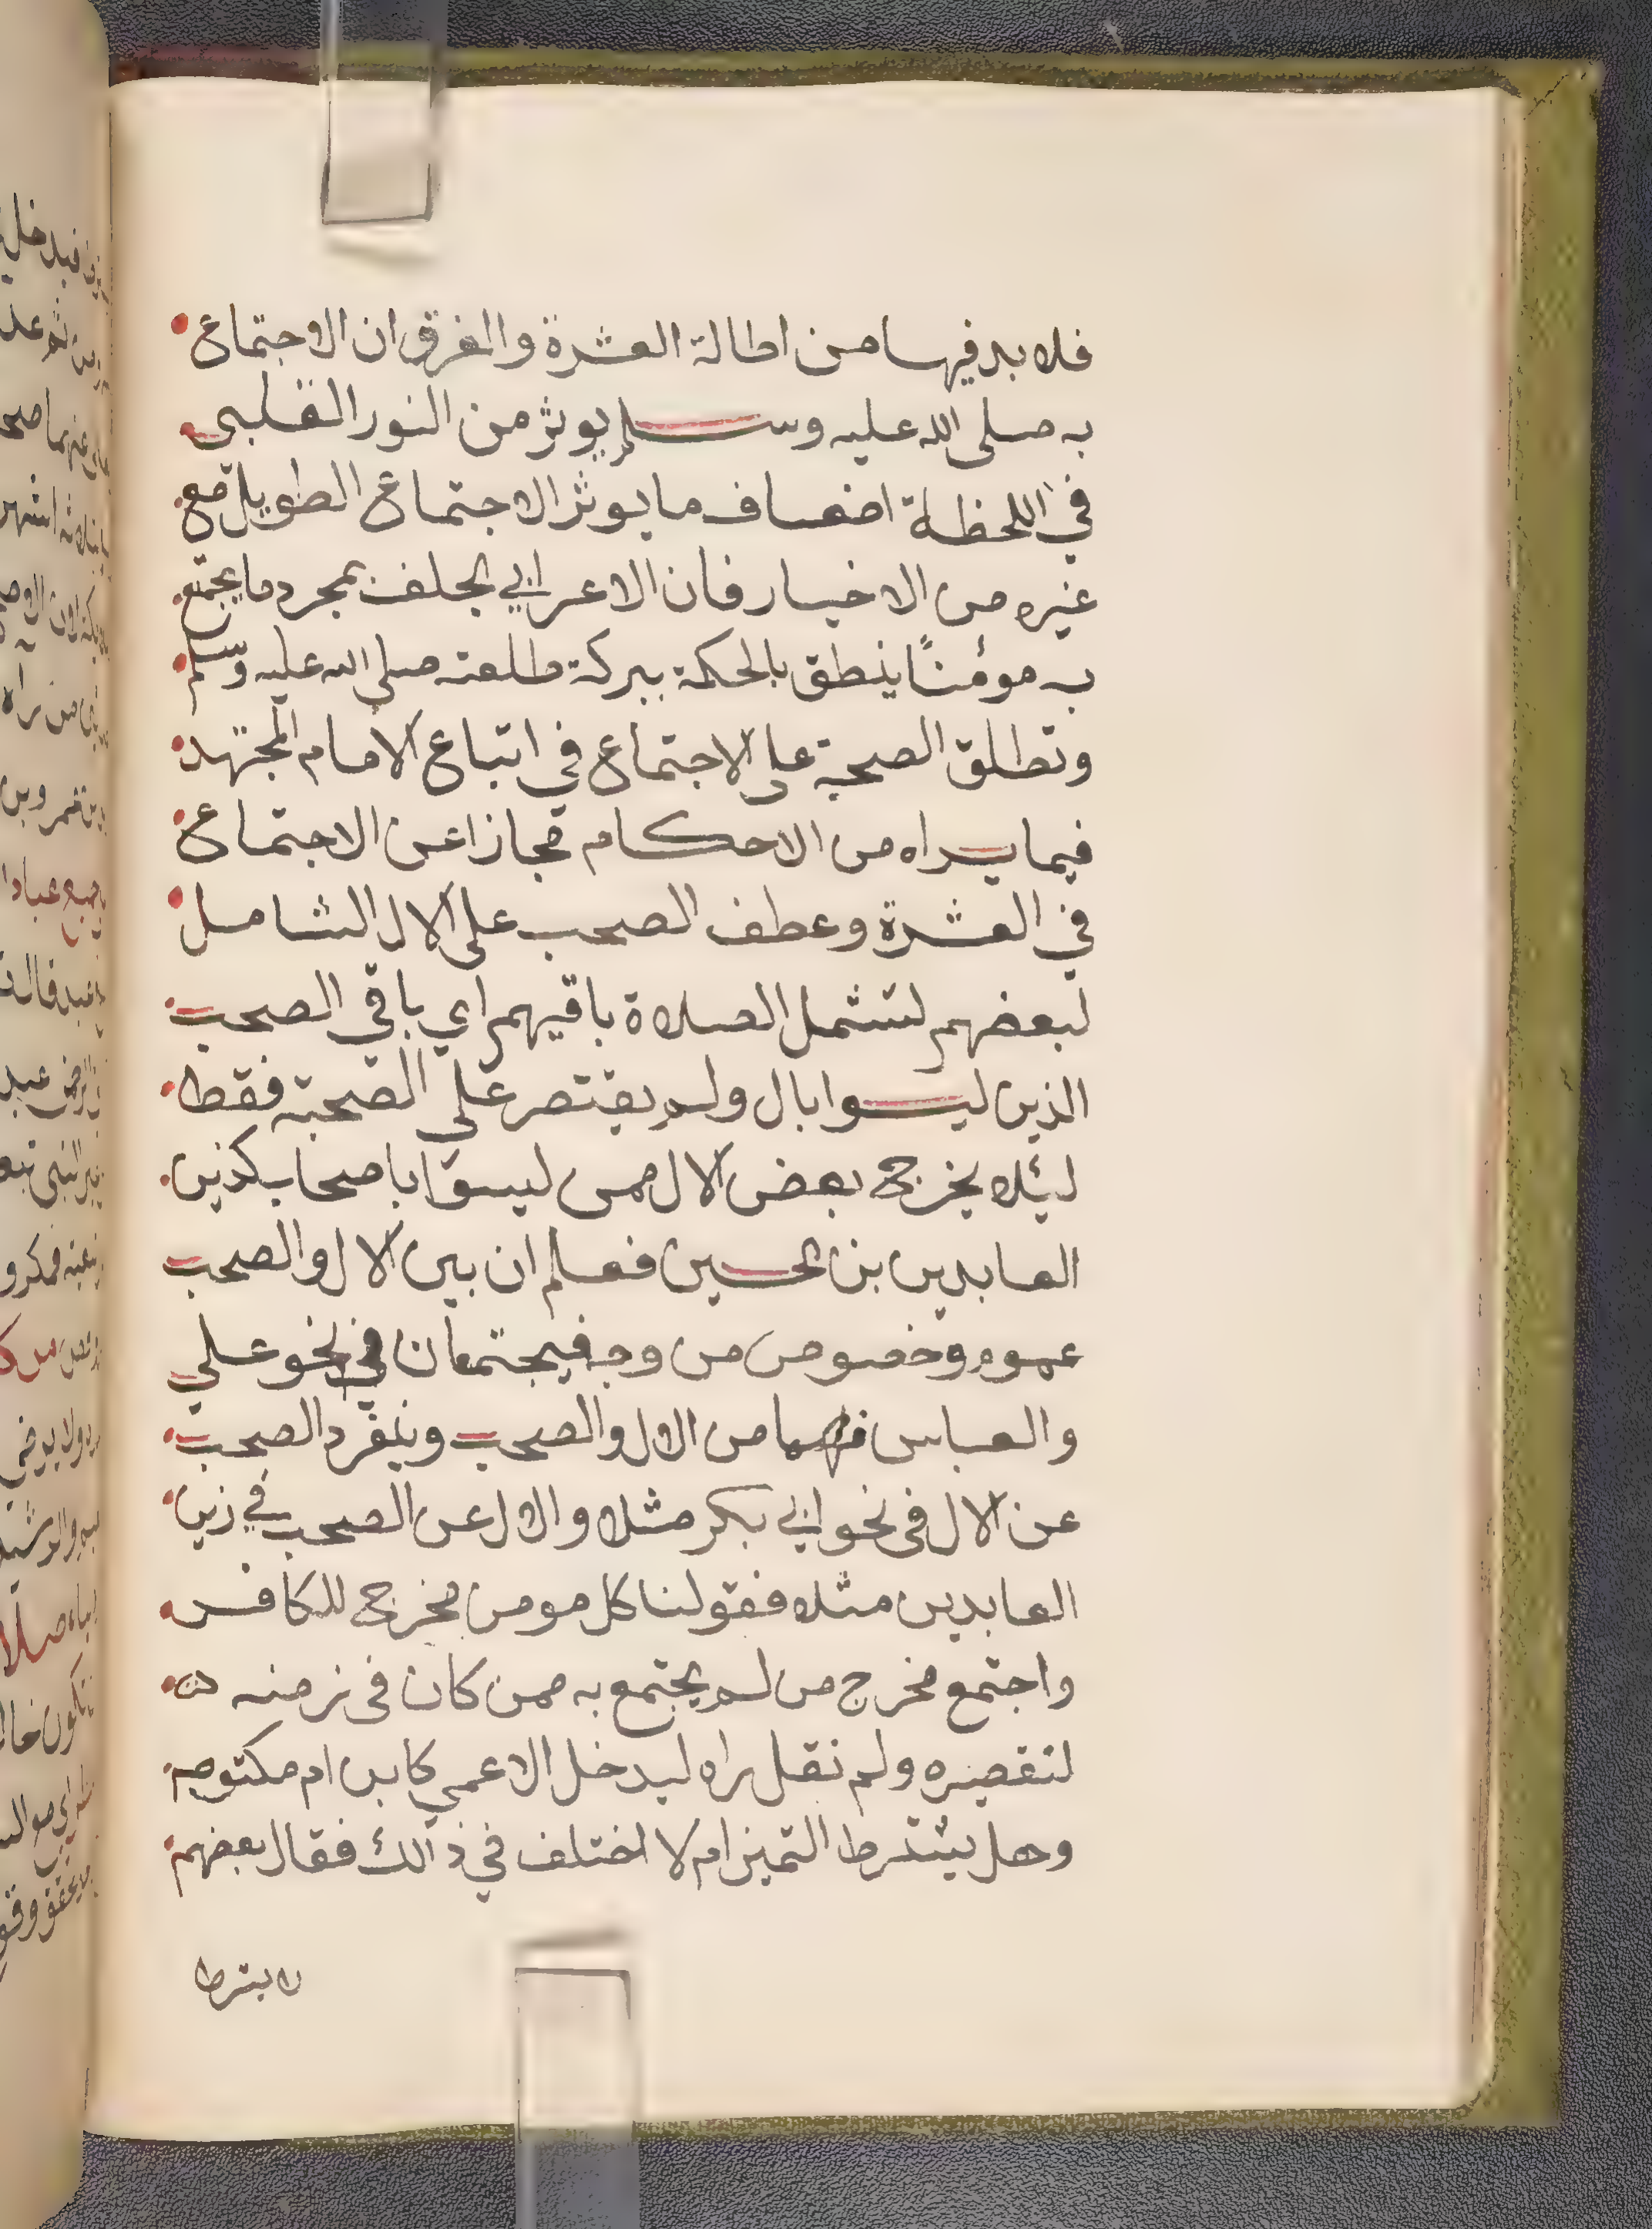 فلا بد فيها من اطالة العشرة والفرق ان الاجتماع
به صلى الله عليه وسلم يوثر من النور القلبي
في اللحظة اضعاف ما يوثر الاجتماع الطويل مع
غيره من الاخيار فان الاعرابي الجلف بمجرد ما يجتمع
به مومنًا ينطق بالحكمة ببركة طلعته صلى الله عليه وسلم
وتطلق الصحبة على الاجتماع في اتباع الامام المجتهد
فيما يراه من الاحكام مجازا عن الاجتماع
في العشرة وعطف الصحب على الال الشامل
لبعضهم لتشمل الصلاة باقيهم اي باقي الصحب
الذين ليسوا بال ولم يقتصر على الصحبة فقط
ليئلا يخرج بعض الال ممن ليسوا باصحاب كذين
العابدين بن الحسين فعلم ان بين الال والصحب
عموم وخصوص من وجه فيجتمعان في نحو علي
والعباس فهما من الال والصحب وينفرد الصحب
عن الال في نحو ابي بكر مثلا والال عن الصحب في زين
العابدين مثلا فقولنا كل مومن مخرج للكافر
واجتمع مخرج من لم يجتمع به ممن كان في زمنه
لتقصيره ولم نقل راه ليدخل الاعمي كابن ام مكتوم
وهل يشترط التميز ام لا اختلف في ذالك فقال بعضهم
لا يشرط